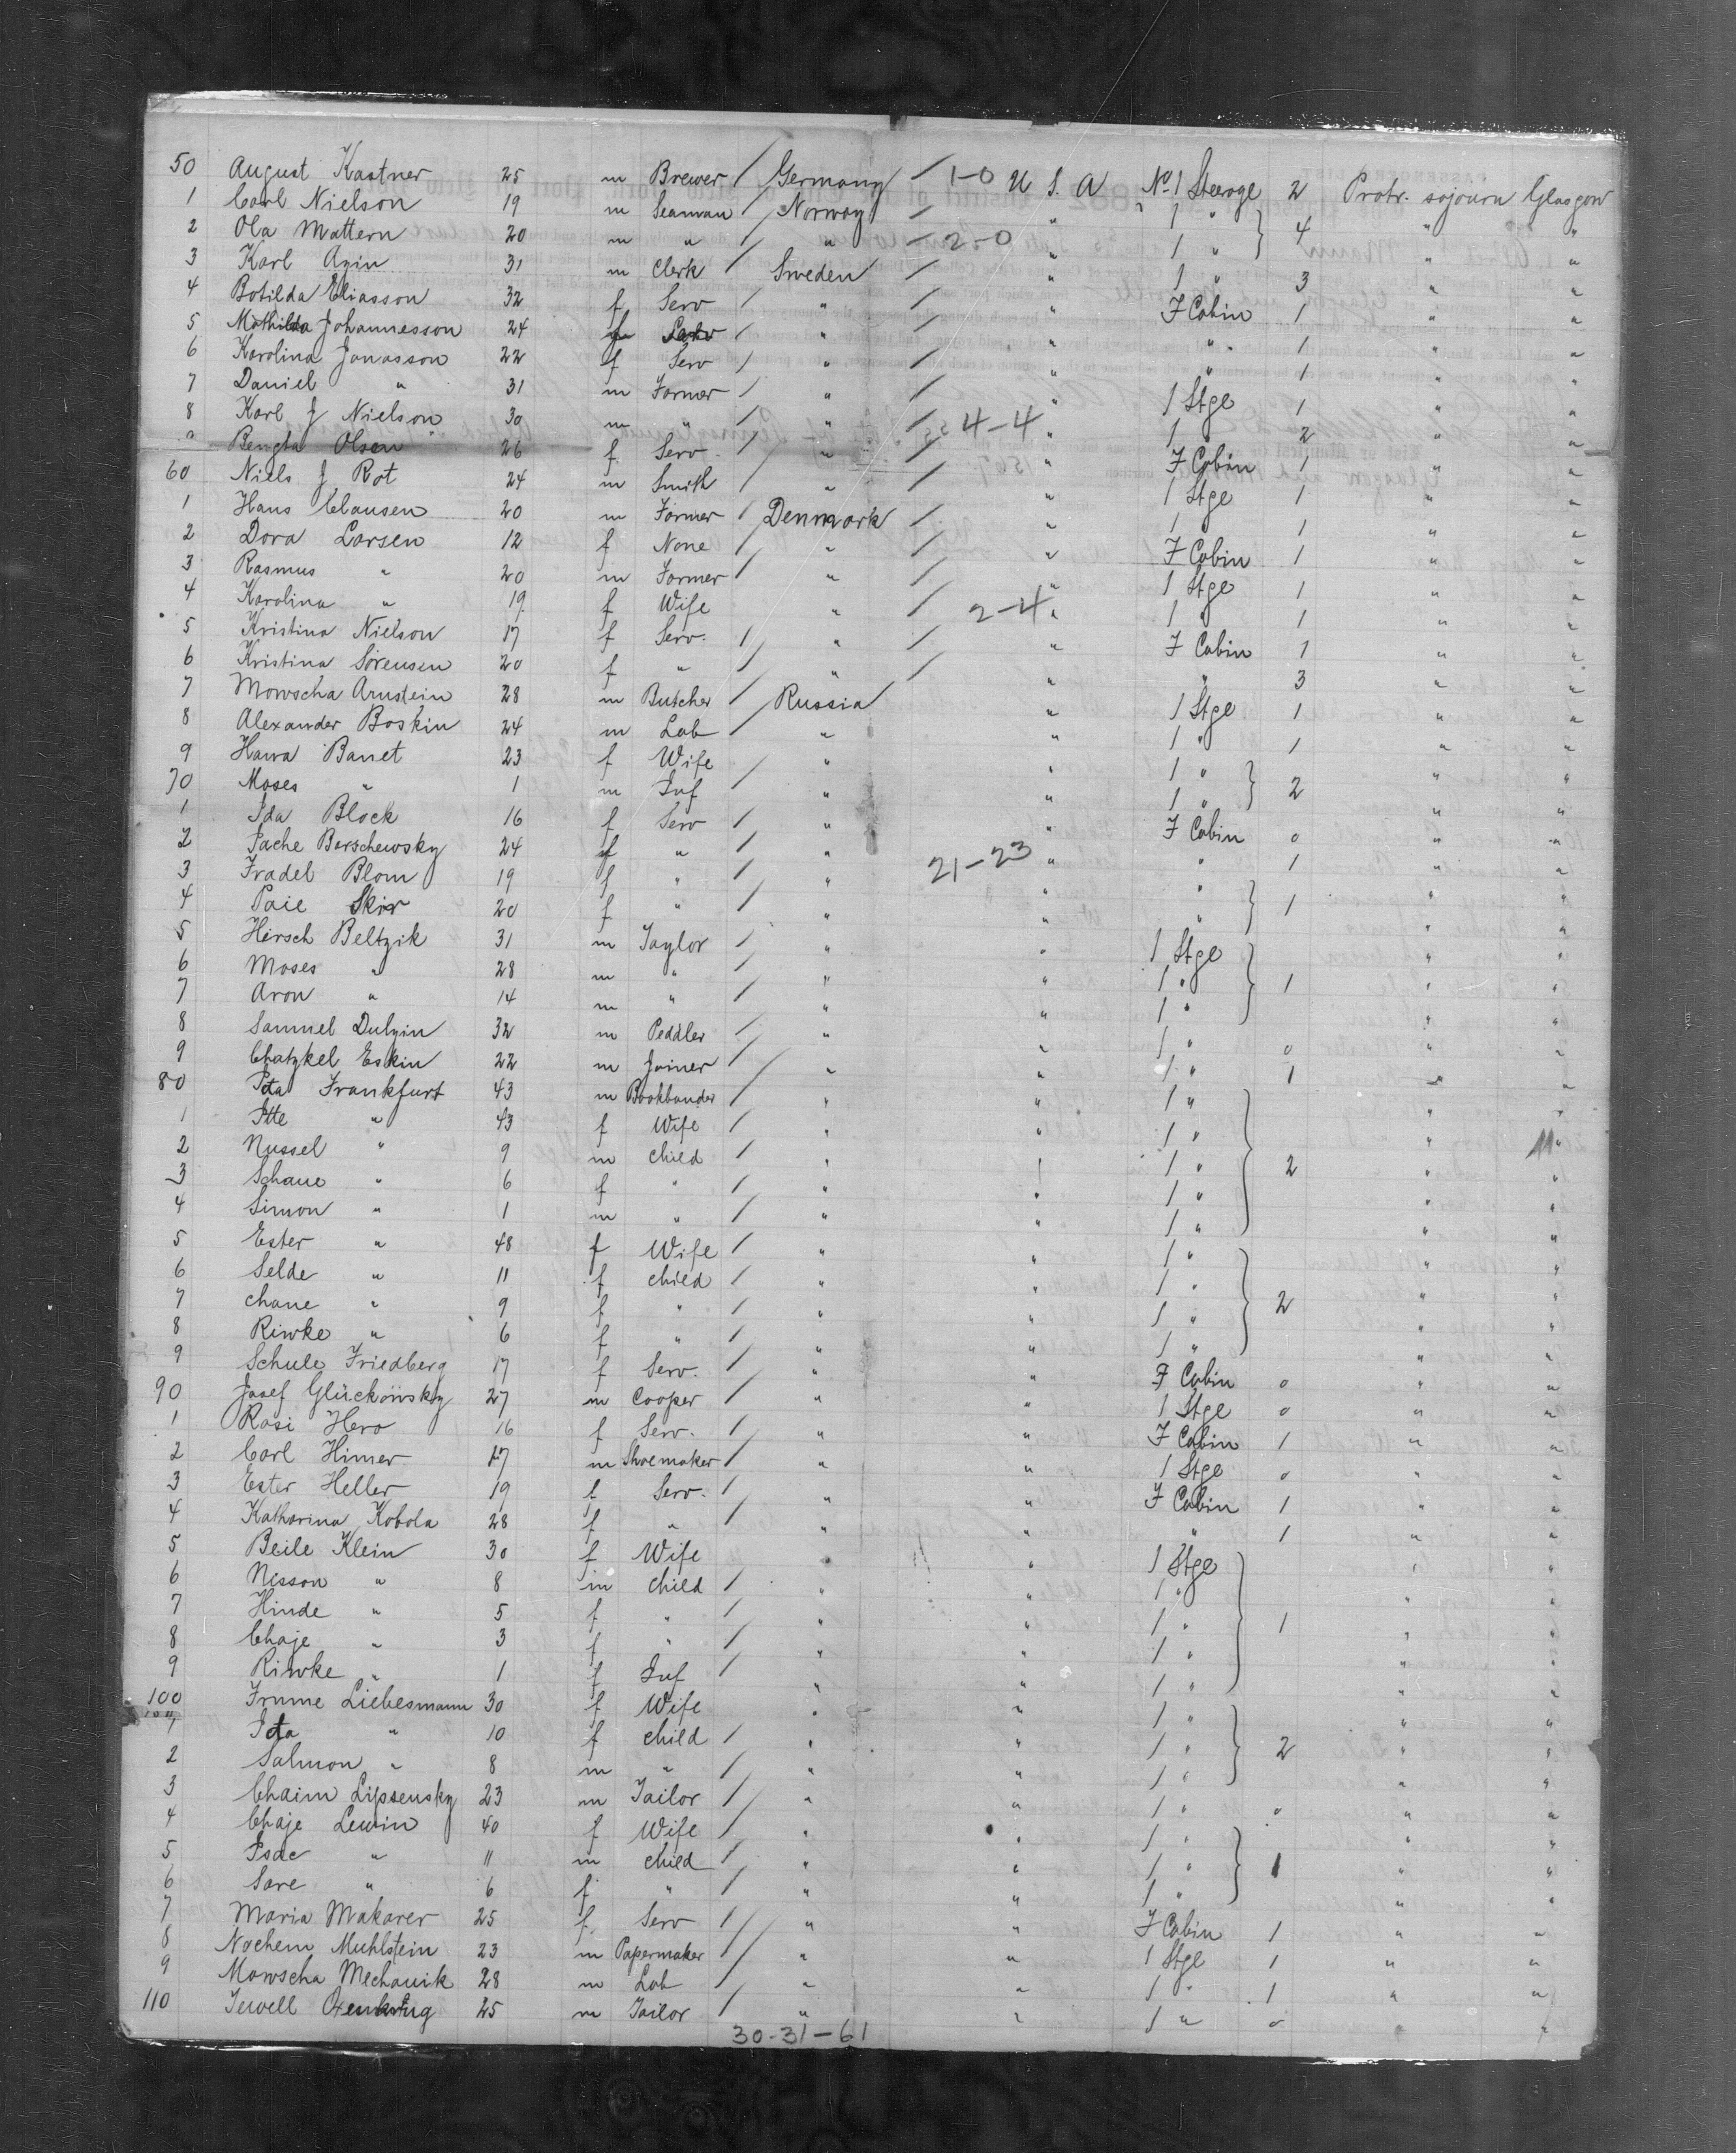 50 August Kastner 25 m Brewer / Germany / 1-0 U S. A No 1 Steeroge 2 Protr. sojourn Glasgow
1 Carl Nielson 19 m Seaman / Norway / " 1 " } 4 " "
2 Ola Mattern 20 m " / " / 2-0 " 1 " " "
3 Karl Azin 31 m Clerk / Sweden / " 1 " 3 " "
4 Botilda Eliasson 32 f Serv / " / " F Cabin 1 " "
5 Mathilda Johannesson 24 f Serv / " / " " 1 " "
6 Karolina Jonasson 22 f Serv / " / " " 1 " "
7 Daniel " 31 m Farmer / " / " 1 Stge 1 " "
8 Karl J Nielson 30 m " / " / 4-4 " 1 " 2 " "
9 Bengta Olsen 26 f Serv. " / " F Cabin 1 " "
60 Niels J Rot 24 m Smith / " / " 1 Stge 1 " "
1 Hans Clausen 20 m Farmer / Denmark / " 1 1 " "
2 Dora Larsen 12 f None / " / " F Cabin 1 " "
3 Rasmus " 20 m Farmer / " / " 1 Stge 1 " "
4 Karolina " 19 f Wife " / 2-4 " 1 " 1 " "
5 Kristina Nielson 17 f Serv. / " / " F Cabin 1 " "
6 Kristina Sörensen 20 f " / " / " " 3 " "
7 Mowscha Arnstein 28 m Butcher / Russia " 1 Stge 1 " "
8 Alexander Boskin 24 m Lab / " " 1 " 1 " "
9 Hawa Banet 23 f Wife " " 1 " } 2 " "
70 Moses " 1 m Inf / " " 1 " " "
1 Ida Block 16 f Serv / " " F Cabin 0 " "
2 Pache Borschewsky 24 f " / " 21-23 " " 1 " "
3 Fradel Blom 19 f " / " " " } 1 " "
4 Paie Skir 20 f " / " " " " "
5 Hirsch Beltzik 31 m Taylor / " " 1 Stge } 1 " "
6 Moses " 28 m " / " " 1 " " "
7 Aron " 14 m " / " " 1 " " "
8 Samuel Dulzin 32 m Peddler / " " 1 " 0 " "
9 Chatzkel Eskin 22 m Joiner / " " 1 " 1 " "
80 Peta Frankfurt 43 m Bookbander / " " 1 " } 2 " "
1 Itte " 43 f Wife / " " 1 " " 11 "
2 Nussel " 9 m child / " " 1 " " "
3 Schane " 6 f " / " " 1 " " "
4 Simon " 1 m " / " " 1 " " "
5 Ester " 48 f Wife / " " 1 " } 2 " "
6 Selde " 11 f child / " " 1 " " "
7 Chane " 9 f " / " " 1 " " "
8 Riwke " 6 f " / " " 1 " " "
9 Schule Friedberg 17 f Serv. / " " F Cabin 0 " "
90 Josef Glückowsky 27 m Cooper / " " 1 Stge 0 " "
1 Rosi Hero 16 f Serv. / " " F Cabin 1 " "
2 Carl Himer 27 m Shoemaker / " " 1 Stge 0 " "
3 Ester Heller 19 f Serv. / " " F Cabin 1 " "
4 Katharina Kobola 28 f " / " " " 1 " "
5 Beile Klein 30 f Wife " " 1 Stge } 1 " "
6 Nisson " 8 m child / " " 1 " " "
7 Hinde " 5 f " / " " 1 " " "
8 Chaje " 3 f " / " " 1 " " "
9 Riwke " 1 f Inf / " " 1 " " "
100 Frume Liebesmann 30 f Wife " " 1 " } 2 " "
1 Ida " 10 f child / " " 1 " " "
2 Salmon " 8 m " / " " 1 " " "
3 Chaim Lipsensky 23 m Tailor / " " 1 " 0 " "
4 Chaje Lewin 40 f Wife / " " 1 " } 1 " "
5 Isac " 11 m child / " " 1 " " "
6 Sore " 6 f " / " " 1 " " "
7 Maria Makarer 25 f Serv / " " F Cabin 1 " "
8 Nochem Muhlstein 23 m Papermaker / " " 1 Stge 1 " "
9 Mowscha Mechanik 28 m Lab / " " 1 " 1 " "
110 Jewell 25 m Tailor / " " 1 " 0 " "
30-31-61